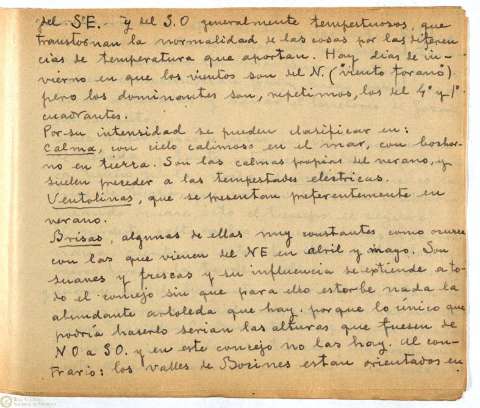 del S.E. y del S.O generalmente tempestuosos, que
trastornan la normalidad de las cosas por las diferen
cias de temperatura que aportan. Hay dias de in-
vierno en que los vientos son del N. ("viento torano")
pero los dominantes son, repetimos, los del 4º y 1º
cuadrantes.
Por su intensidad se pueden clasificar en:
Calma, con cielo calimoso en el mar, con bochor-
no en tierra. Son las calmas propias del verano, y
suelen preceder a las tempestades electricas.
Ventolinas, que se presentan preferentemente en
verano.
Brisas, algunas de ellas muy constantes como ocurre
con las que vienen del NE en abril y mayo. Son
suaves y frescas y su influencia se extiende a to-
do el concejo sin que para ello estorbe nada la
abundante arboleda que hay. porque lo único que
podría hacerlo serian las alturas que fuesen de
NO a SO. y en este concejo no las hay. Al con-
trario: los valles de Bozines estan orientados en